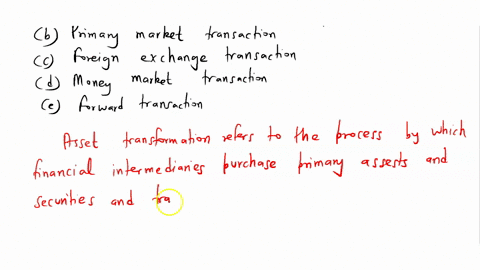 (b) Primary market transaction
(c) Foreign exchange transaction
(d) Money market transaction
(e) Forward transaction
Asset transformation refers to the process by which
financial intermediaries purchase primary assests and
securities and tra